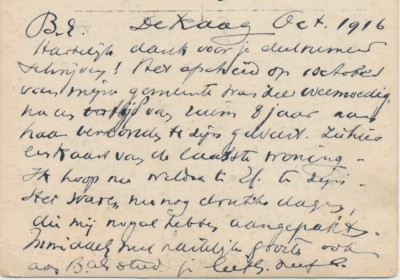 B.E. De Kaag Oct. 1916
Hartelijk dank voor je deelnemend
schrijven! Het afscheid op 1 october
van mijne gemeente was zeer weemoedig
na er van ruim 8 jaar aan
haar verbonden te zijn geweest. Hierbij
een kaart van de laatste woning -
Ik hoop nu weldra te Z. te zijn.
Het waren nu nog drukke dagen,
die mij nogal hebben aangepakt.
met hartelijke groeten ook
aan je